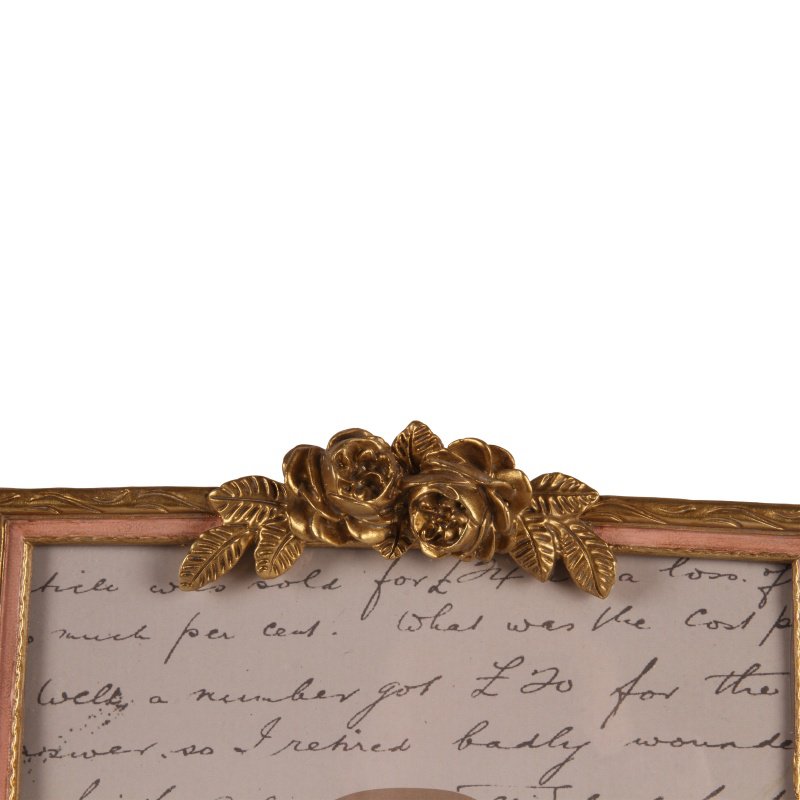 ticle was sold for £24 a loss of
much per cent. What was the cost p
Well, a number got £20 for the
nswer, so I retired badly wounde